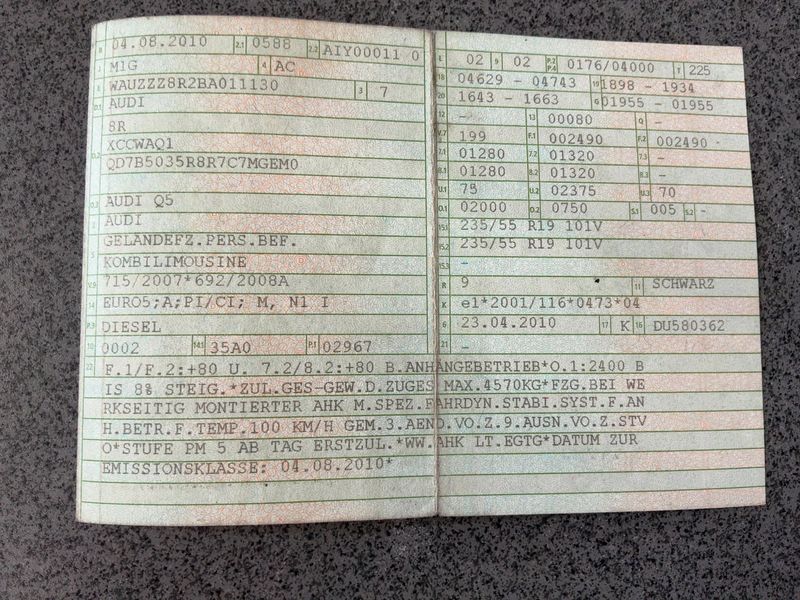 B 04.08.2010 2.1 0588 2.2 AIY00011 0
J M1G 4 AC
E WAUZZZ8R2BA011130 3 7
D.1 AUDI
8R
XCCWAQ1
D.2 QD7B5035R8R7C7MGEM0
D.3 AUDI Q5
2 AUDI
GELANDEFZ.PERS.BEF.
5 KOMBILIMOUSINE
V.9 715/2007*692/2008A
14 EURO5;A;PI/CI; M, N1 I
P.3 DIESEL
10 0002 14.1 35A0 P.1 02967
L 02 9 02 P.2 P.4 0176/04000 T 225
18 04629 - 04743 19 1898 - 1934
20 1643 - 1663 G 01955 - 01955
12 - 13 00080 Q -
V.7 199 F.1 002490 F.2 002490
7.1 01280 7.2 01320 7.3 -
8.1 01280 8.2 01320 8.3 -
U.1 75 U.2 02375 U.3 70
O.1 02000 O.2 0750 S.1 005 S.2 -
15.1 235/55 R19 101V
15.2 235/55 R19 101V
15.3 -
R 9 11 SCHWARZ
K e1*2001/116*0473*04
6 23.04.2010 17 K 16 DU580362
21 -
22 F.1/F.2:+80 U. 7.2/8.2:+80 B.ANHÄNGEBETRIEB*O.1:2400 B
IS 8% STEIG.*ZUL.GES-GEW.D.ZUGES MAX.4570KG*FZG.BEI WE
RKSEITIG MONTIERTER AHK M.SPEZ.FAHRDYN.STABI.SYST.F.AN
H.BETR.F.TEMP.100 KM/H GEM.3.AEND.VO.Z.9.AUSN.VO.Z.STV
O*STUFE PM 5 AB TAG ERSTZUL.*WW.AHK LT.EGTG*DATUM ZUR
EMISSIONSKLASSE: 04.08.2010*